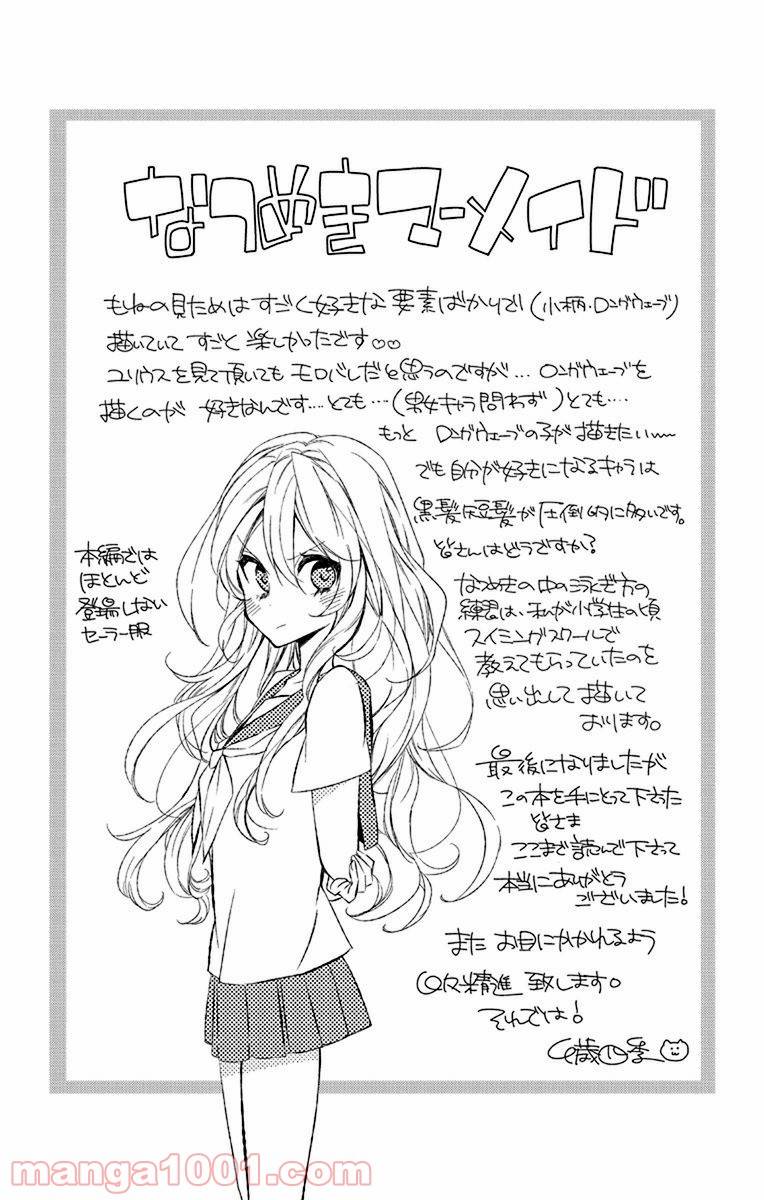 なつめきマーメイド
もねの見ためは すごく好きな 要素ばかりで (小柄・ロングウェーブ)
描いていて すごく 楽しかったです♡♡
ユリウスを見て頂いても モロバレだと思うのですが… ロングウェーブを
描くのが 好きなんです…とても…(男女キャラ問わず)とても…
もっと ロングウェーブの子が描きたい〜
でも自分が好きになるキャラは
黒髪短髪が圧倒的に多いです。
皆さんはどうですか?
本編では
ほとんど
登場しない
セーラー服
なつめきの中の泳ぎ方の
練習は、私が小学生の頃
スイミングスクールで
教えてもらっていたのを
思い出して描いて
おります。
最後になりましたが
この本を手にとって下さった
皆さま
ここまで読んで下さって
本当にありがとう
ございました!
また お目にかかれるよう
日々精進 致します。
それでは!
歳四季
manga1001.com